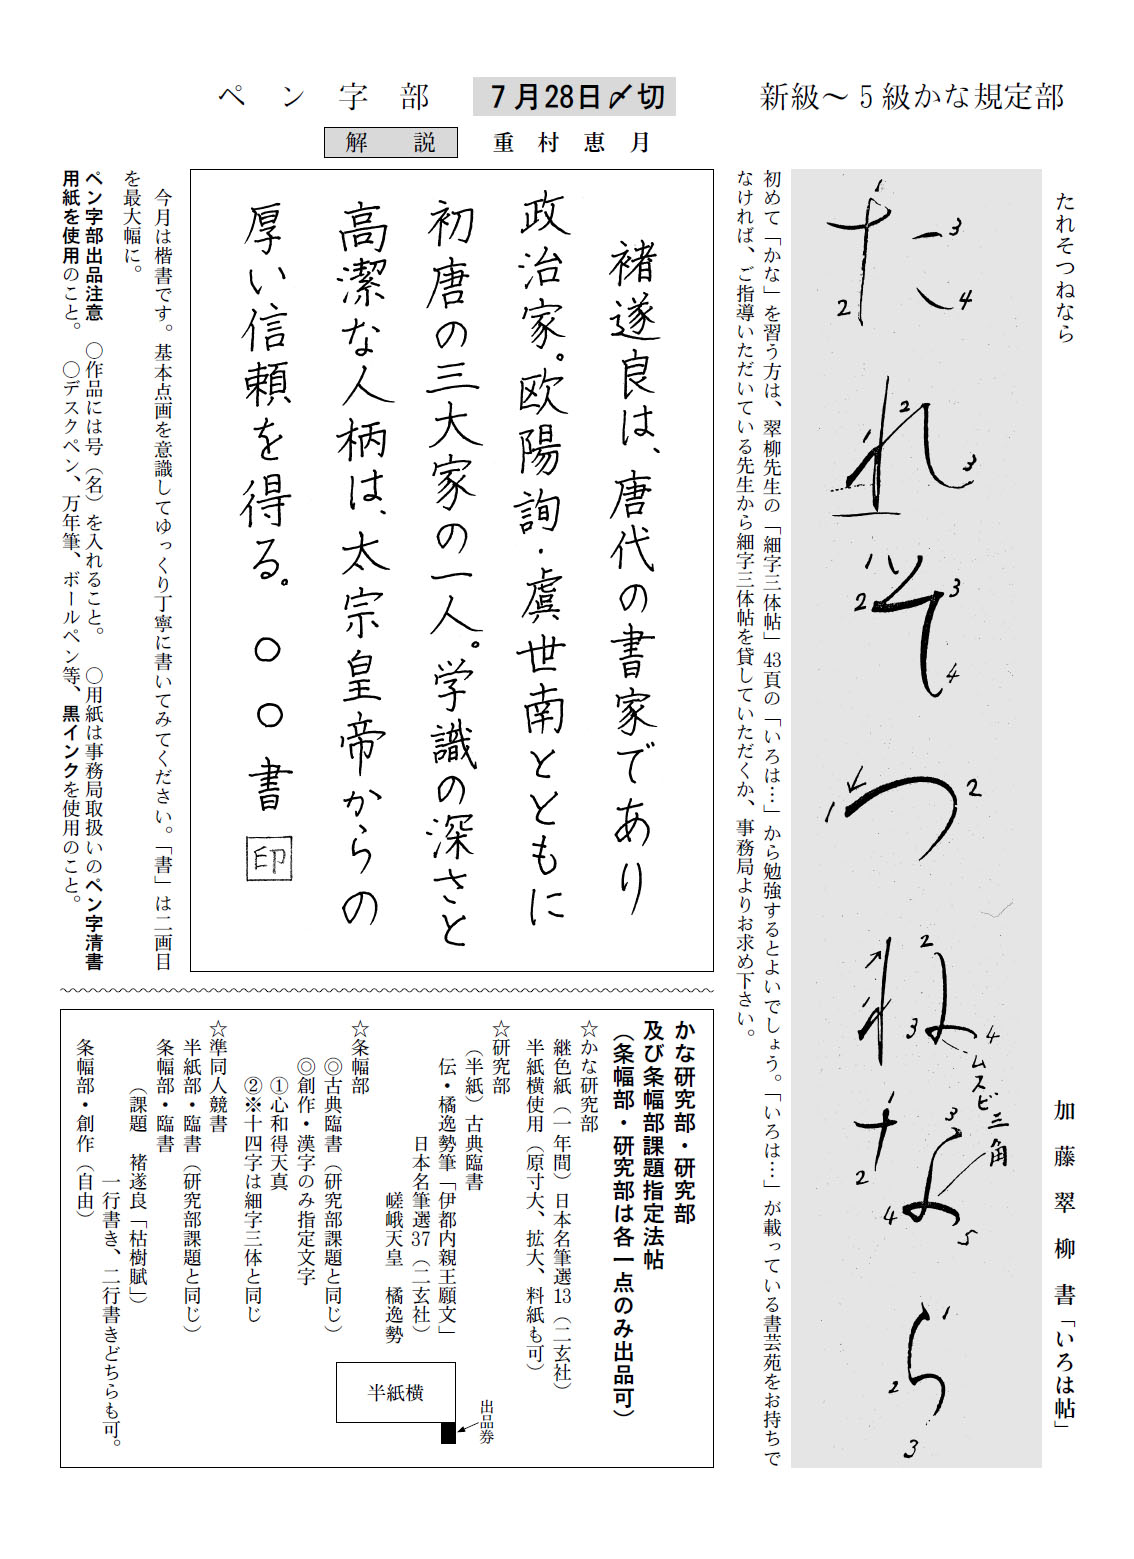 新級～５級かな規定部
たれそつねなら
加藤翠柳書「いろは帖」
1
2
3
4
た
れ
2
3
そ
1
2
3
4
つ
1
2
ね
2
3
4
ムスビ三角
な
2
3
4
5
ら
1
2
3
初めて「かな」を習う方は、翠柳先生の「細字三体帖」43頁の「いろは…」から勉強するとよいでしょう。「いろは…」が載っている書芸苑をお持ちで
なければ、ご指導いただいている先生から細字三体帖を貸していただくか、事務局よりお求め下さい。
ペン字部
７月28日〆切
解説
重村恵月
褚遂良は、唐代の書家であり
政治家。欧陽詢・虞世南とともに
初唐の三大家の一人。学識の深さと
高潔な人柄は、太宗皇帝からの
厚い信頼を得る。○○書 印
今月は楷書です。基本点画を意識してゆっくり丁寧に書いてみてください。「書」は二画目
を最大幅に。
ペン字部出品注意 ○作品には号（名）を入れること。 ○用紙は事務局取扱いのペン字清書
用紙を使用のこと。 ○デスクペン、万年筆、ボールペン等、黒インクを使用のこと。
かな研究部・研究部
及び条幅部課題指定法帖
（条幅部・研究部は各一点のみ出品可）
☆かな研究部
継色紙（一年間）日本名筆選13（二玄社）
半紙横使用（原寸大、拡大、料紙も可）
☆研究部
（半紙）古典臨書
伝・橘逸勢筆「伊都内親王願文」
日本名筆選37（二玄社）
嵯峨天皇 橘逸勢
出品券
半紙横
☆条幅部
◎古典臨書（研究部課題と同じ）
◎創作・漢字のみ指定文字
①心和得天真
②※十四字は細字三体と同じ
☆準同人競書
半紙部・臨書（研究部課題と同じ）
条幅部・臨書
（課題 褚遂良「枯樹賦」）
一行書き、二行書きどちらも可。
条幅部・創作（自由）